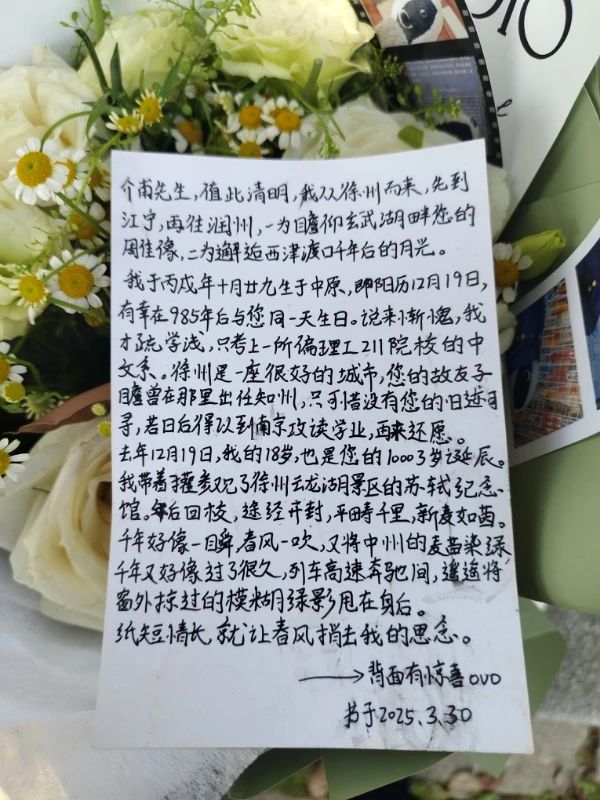 介甫先生，值此清明，我从徐州而来，先到
江宁，再往润州，一为瞻仰玄武湖畔您的
雕像，二为邂逅西津渡口千年后的月光。
我于丙戌年十月廿九生于中原，即阳历12月19日，
有幸在985年后与您同一天生日。说来惭愧，我
才疏学浅，只考上一所偏理工211院校的中
文系。徐州是一座很好的城市，您的故友子
瞻曾在那里出任知州，只可惜没有您的旧迹可
寻，若日后得以到南京攻读学业，再来还愿。
去年12月19日，我的18岁，也是您的1003岁诞辰。
我带着獾参观了徐州云龙湖景区的苏轼纪念
馆。年后回校，途经开封，平畴千里，新麦如茵。
千年好像一瞬，春风一吹，又将中州的麦苗染绿，
千年又好像过了很久，列车高速奔驰间，遥遥将
窗外掠过的模糊绿影甩在身后。
纸短情长，就让春风捎去我的思念。
→背面有惊喜OVO
书于2025.3.30